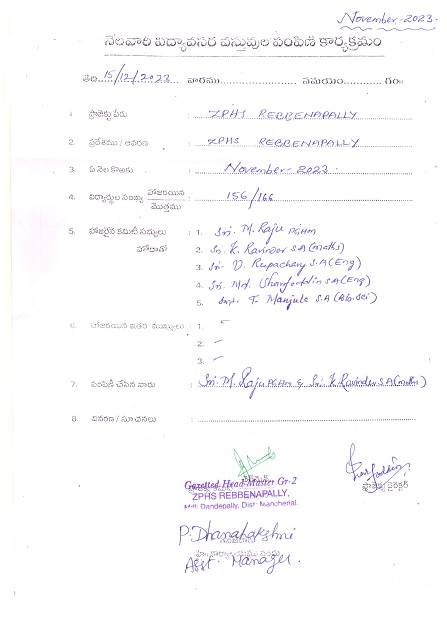 November-2023-
నెలవారి విద్యావసర వస్తువుల పంపిణి కార్యక్రమం
తేది 15/12/2023 వారము................ సమయం............ గం॥
1 ప్రాజెక్టు పేరు : ZPHS REBBENAPALLY
2. ప్రదేశము / ఆవరణ : ZPHS REBBENAPALLY
3. ఏ నెల కొఱకు : November-2023
4. విద్యార్థుల సంఖ్య హాజరయిన / మొత్తము : 156/166
5. హాజరైన కమిటీ సభ్యులు : 1. Sri. M. Raju PGHM
హోదాతో 2. Sri. K. Ravinder S.A (maths)
3. Sri. D. Rupachary S.A (Eng)
4. Sri. Md. Sharfoddin S.A (Eng)
5. Smt. T. Manjula S.A (Bio.Sci)
6. హాజరయిన ఇతర ముఖ్యులు : 1. -
2. -
3. -
7. పంపిణీ చేసిన వారు : Sri. M. Raju PGHM & Sri. K Ravinder S.A (maths)
8. వివరణ / సూచనలు :
Gazetted Head-Master Gr-2
ZPHS REBBENAPALLY,
Mdl: Dandepally, Dist: Mancherial.
ప్రాజెక్టు డైరెక్టర్
P. Dhanalakshmi
Asst. Manager.